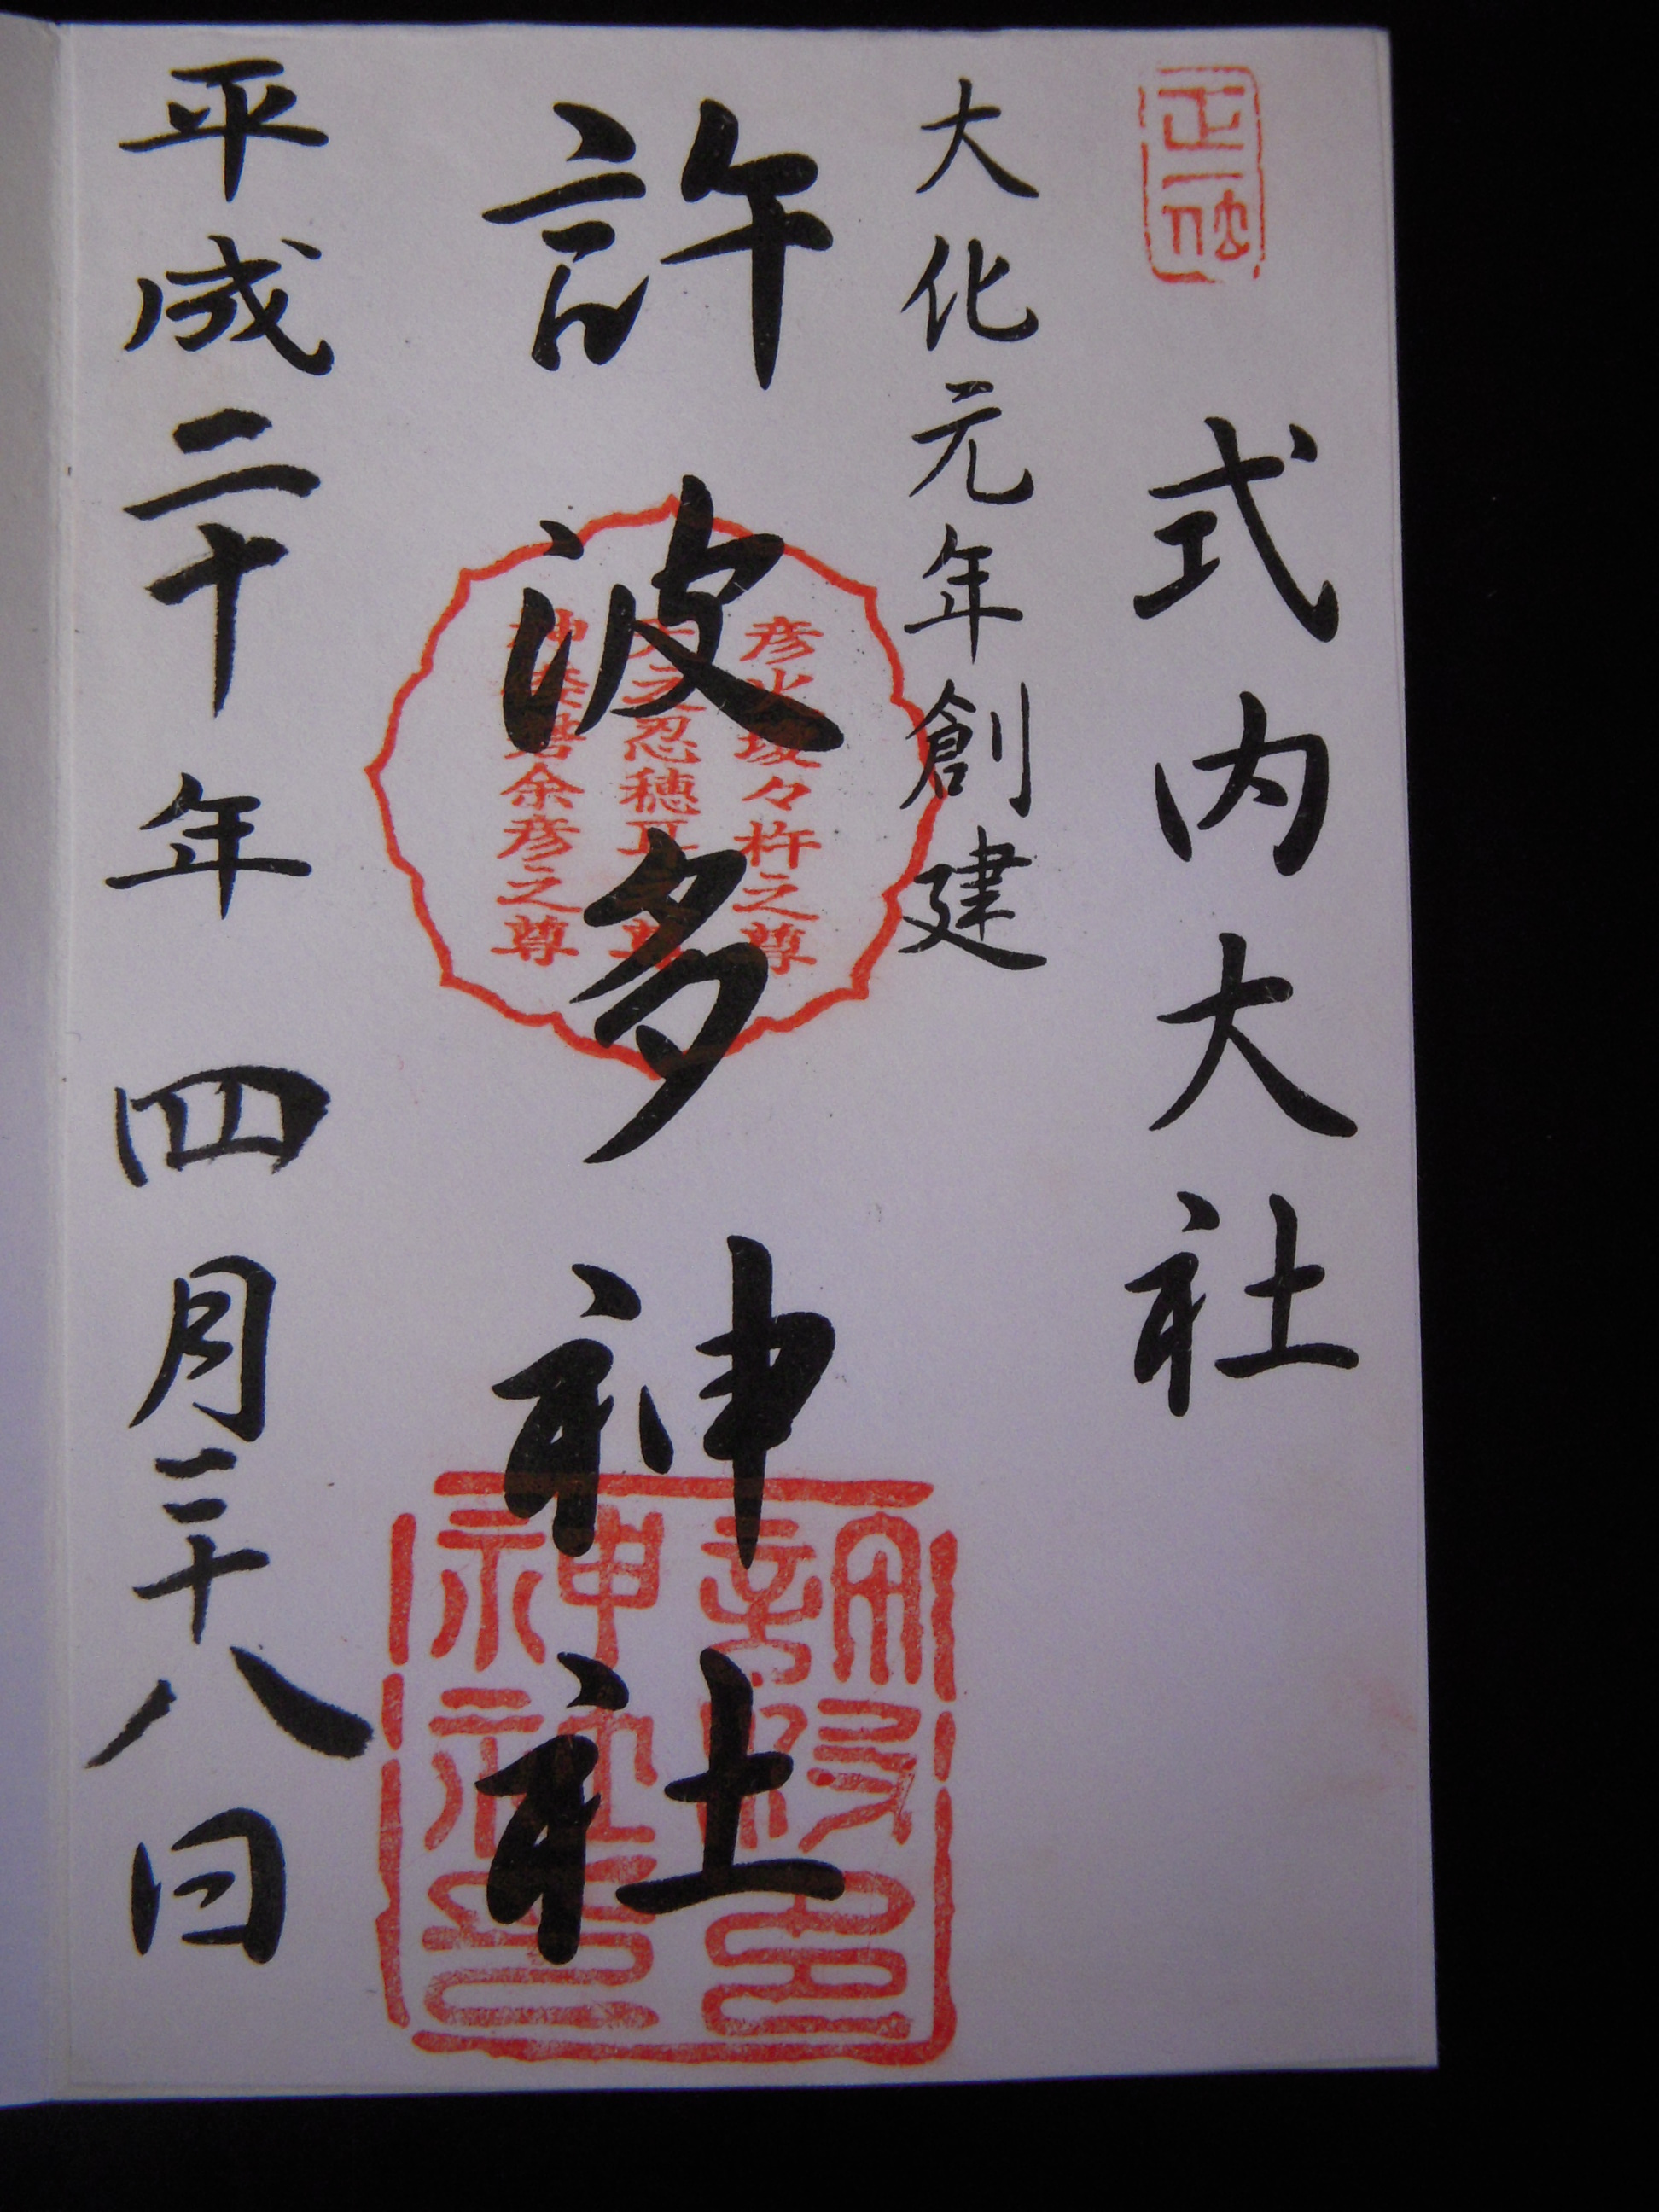 正一位
式内大社
大化元年創建
許波多神社
彦火瓊々杵之尊
天之忍穂耳之尊
神倭磐余彦之尊
許波多神社印
平成二十年四月二十八日